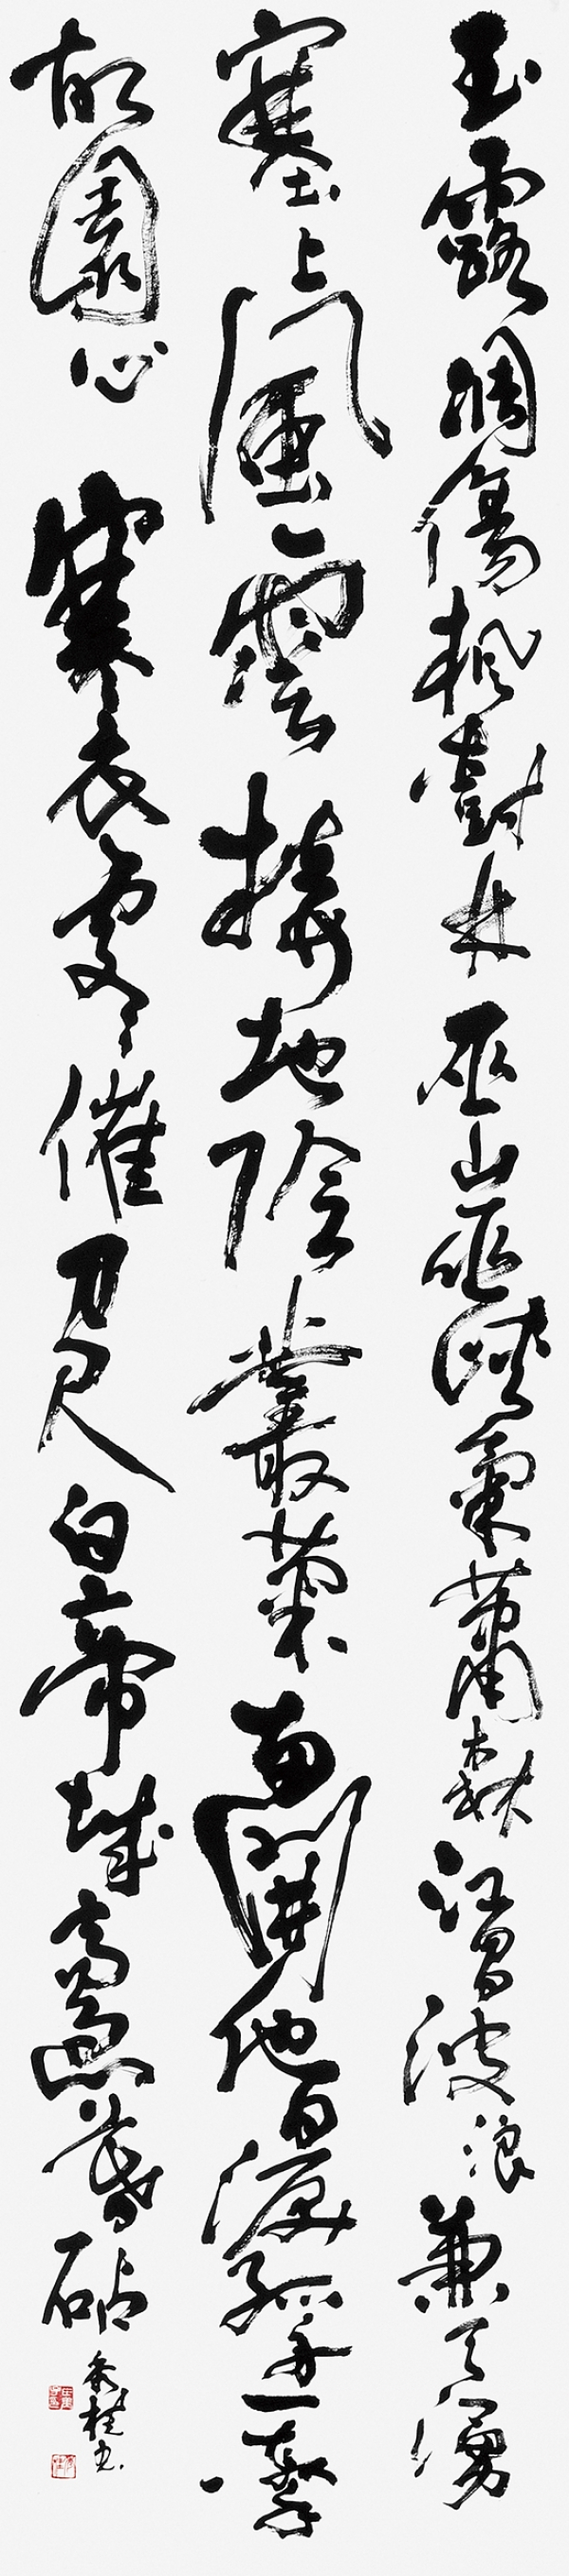 玉露凋傷楓樹林巫山巫峽氣蕭森江間波浪兼天湧
塞上風雲接地陰叢菊兩開他日淚孤舟一繫
故園心寒衣處々催刀尺白帝城高急暮砧